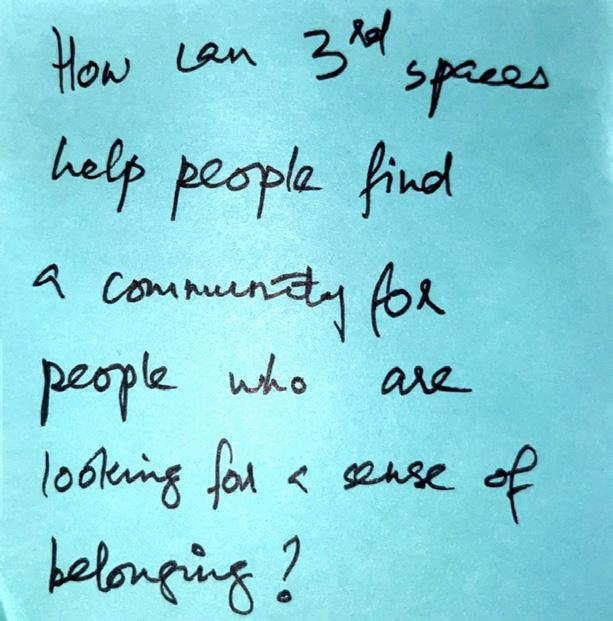 How can 3rd spaces
help people find
a community for
people who are
looking for a sense of
belonging?